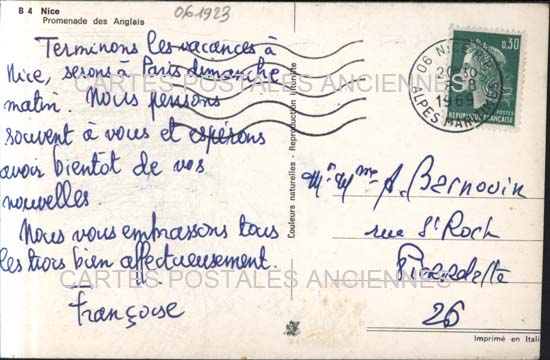 B 4 Nice
Promenade des Anglais
061923
Terminons les vacances à
Nice, serons à Paris dimanche
matin. Nous pensons
souvent à vous et espérons
avoir bientôt de vos
nouvelles.
Nous vous embrassons tous
les trois bien affectueusement.
Françoise
Couleurs naturelles - Reproduction interdite
06 NICE
20 30
8
1969
ALPES MARITIMES
0,30
POSTES
REPUBLIQUE FRANÇAISE
Mr Mme A. Bernouin
rue St Roch
Pierrelatte
26
Imprimé en Itali
CARTES POSTALES ANCIENNES
CARTES POSTALES ANCIENNES